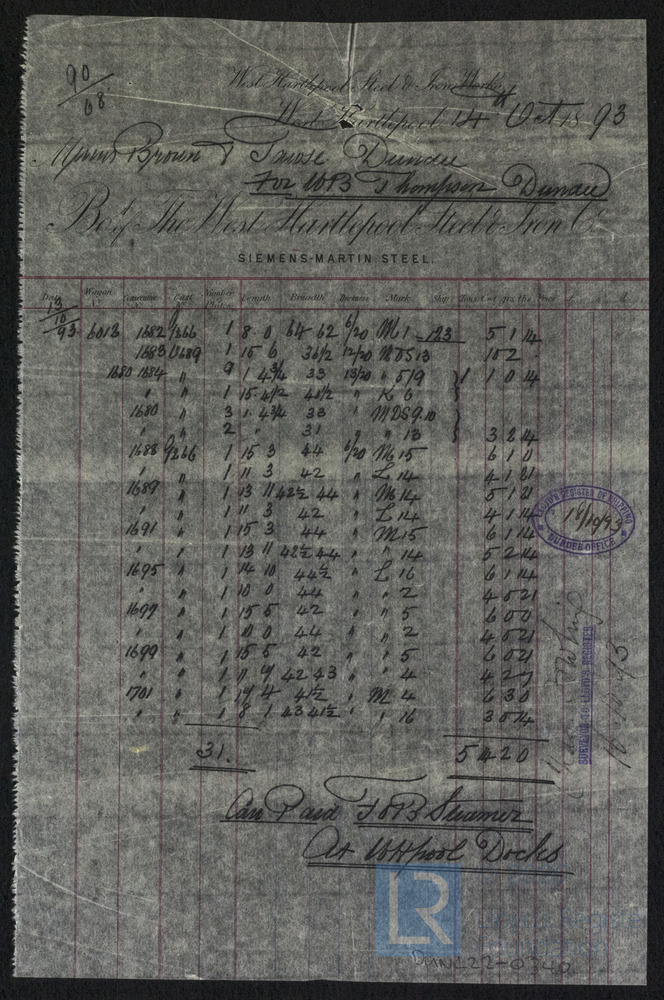 90/68
West Hartlepool Steel & Iron Works
West Hartlepool 14 Oct 18 93
Messrs Brown & Dundee
For WB Thompson Dundee
Bo't of The West Hartlepool Steel & Iron Co
SIEMENS-MARTIN STEEL.
Date Wagon No. Consecutive Cast No. Number Plates Length Breadth Thickness Mark Ship Tons Cwt qrs lbs Price
13/10/93 6013 1682 9266 1 8 0 64 62 6/20 M 1 123 5 1 14
1683 11689 1 15 6 36½ 12/20 MDS13 10 2
1680 1684 " 9 1 4¾ 33 13/20 " 5/9 1 1 0 14
" " 1 15 4½ 41½ " K 6
1680 " 3 1 4¾ 33 " MDS9.10
" " 2 " 31 " " 13 3 2 14
1688 9266 1 15 3 44 6/20 M 15 6 1 0
" " 1 11 3 42 " L 14 4 1 21
1689 " 1 13 11 42½ 44 " M 14 5 1 21
" " 1 11 3 42 " L 14 4 1 14
1691 " 1 15 3 44 " M 15 6 1 14
" " 1 13 11 42½ 44 " " 14 5 2 14
1695 " 1 14 10 44½ " L 16 6 1 14
" " 1 10 0 44 " " 2 4 0 21
1697 " 1 15 5 42 " " 5 6 0 0
" " 1 10 0 44 " " 2 4 0 21
1699 " 1 15 5 42 " " 5 6 0 21
" " 1 11 9 42 43 " " 4 4 2 7
1701 " 1 17 4 41½ " M 4 6 3 0
" " 1 8 1 43 41½ " " 16 3 0 14
31. 5 4 2 0
Car Paid FOB Steamer
At WHpool Docks
LLOYD'S REGISTER OF SHIPPING
18/10/93
DUNDEE OFFICE
SURVEYOR TO LLOYD'S REGISTER
LR
Lloyd's Register
DUNL22-0340